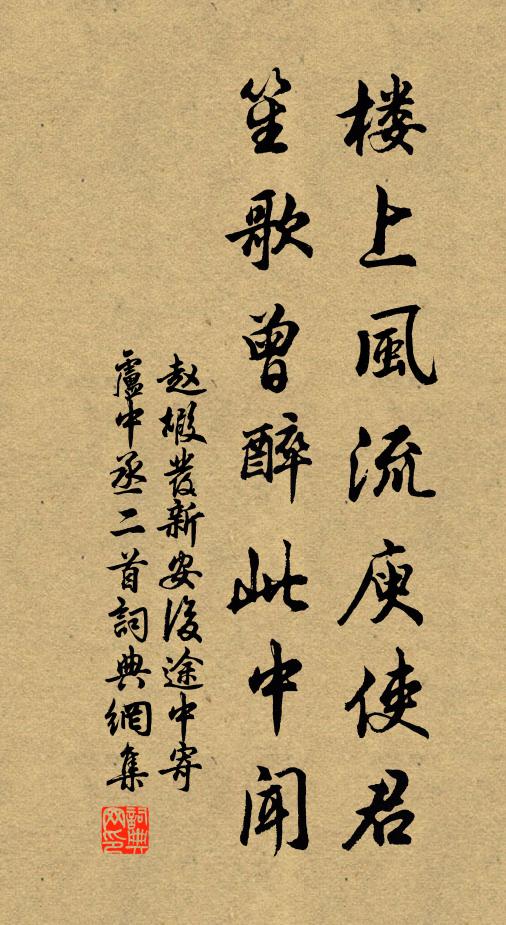 楼上風流庾使君
笙歌曾醉此中闻
赵嘏發新安後途中寄
盧中丞二首詞典網集
詞典網印